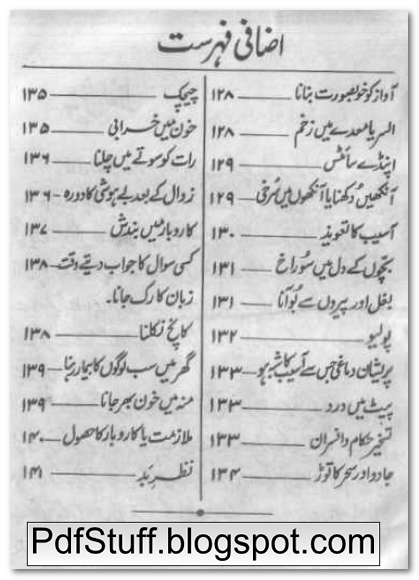 اضافی فہرست
آواز کو خوبصورت بنانا ۱۲۸
السر یا معدے میں زخم ۱۲۸
اپنڈے سائٹس ۱۲۹
آنکھیں دکھنا یا آنکھوں میں سرخی ۱۲۹
آسیب کا تعویذ ۱۳۰
بچوں کے دل میں سوراخ ۱۳۱
بغل اور پیروں سے بو آنا ۱۳۱
پولیو ۱۳۲
پریشان دماغی جس سے آسیب کا شبہ ہو ۱۳۳
پیٹ میں درد ۱۳۳
تسخیر حکام و افسران ۱۳۳
جادو اور سحر کا توڑ ۱۳۴
چیچک ۱۳۵
خون میں خرابی ۱۳۵
رات کو سوتے میں چلنا ۱۳۶
زوال کے بعد بے ہوشی کا دورہ - ۱۳۶
کاروبار میں بندش ۱۳۷
کسی سوال کا جواب دیتے وقت ۱۳۸
زبان کا رک جانا۔
کانچ نکلنا ۱۳۸
گھر میں سب لوگوں کا بیمار رہنا ۱۳۹
منہ میں خون بھر جانا ۱۳۹
ملازمت یا کاروبار کا حصول ۱۴۰
نظر بد ۱۴۱
PdfStuff.blogspot.com